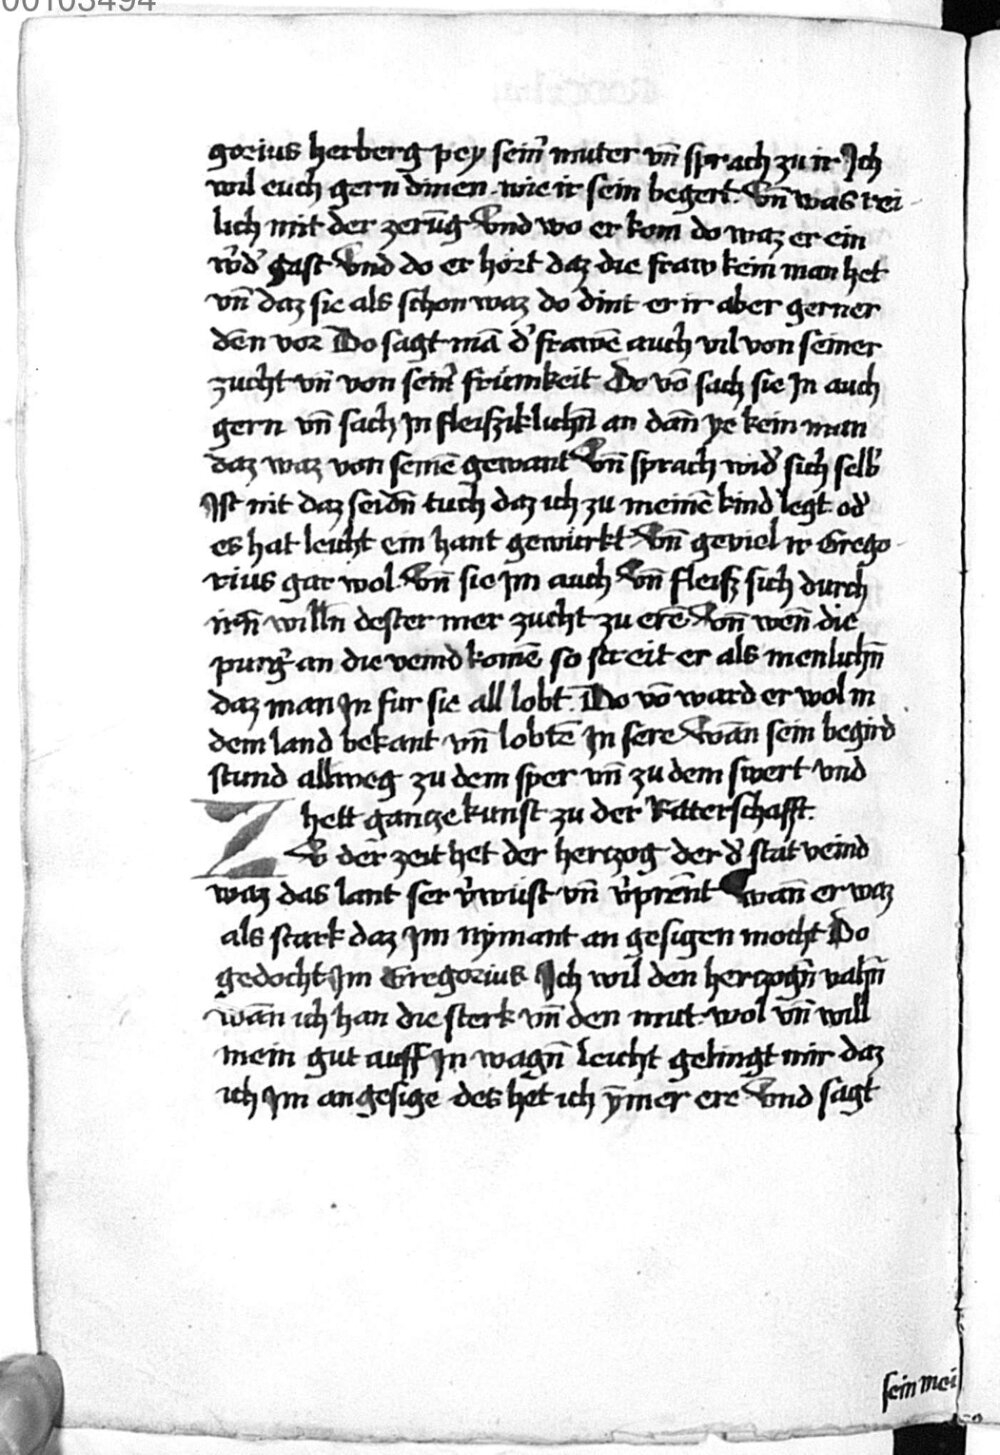 00103494
gorius herberg pey seinr̄ muter vn̄ sprach zu ir Ich
wil euch gern dinen wie ir sein begert. Vn̄ was rei-
lich mit der zerūg Vnd wo er kom do waz er ein
w̄d' gast Vnd do er hort daz die fraw kein man het
vn̄ daz sie als schon waz do dint er ir aber gerner
den vor Do sagt mā d' frawē auch vil von seiner
zucht vn̄ von seinr̄ frümkeit Do vō sach sie In auch
gern vn̄ sach In fleisziklichn̄ an dan̄ ye kein man
daz waz von seinē gewant Vn̄ sprach wid' sich selb'
Ist nit daz seidn̄ tuch daz ich zu meinē kind legt od'
es hat leicht ein hant gewürkt Vn̄ geviel ir Grego-
rius gar wol. Vn̄ sie im auch Vn̄ fleisz sich durch
irn̄ willn̄ dester mer zucht zu erē Vn̄ wen̄ die
purg' an die veind komē so streit er als menlichn̄
daz man In fur sie all lobt. Do vō ward er wol in
dem land bekant vn̄ lobtē In sere Wan̄ sein begird
stund allweg zu dem sper vn̄ zu dem swert vnd
hett gancze kunst zu der Ritterschafft.
ZV der zeit het der herczog der d' stat veind
waz das lant ser v'wüst vn̄ v'prent Wan̄ er waz
als stark daz Im nÿmant an gesigen mocht Do
gedocht Im Gregorius Ich wil den herczogn̄ vahn̄
wan̄ ich han die sterk vn̄ den mut wol vn̄ will
mein gut auff In wagn̄ leicht gelingt mir daz
ich Im an gesige des het ich ÿmer ere Vnd sagt
sein mei